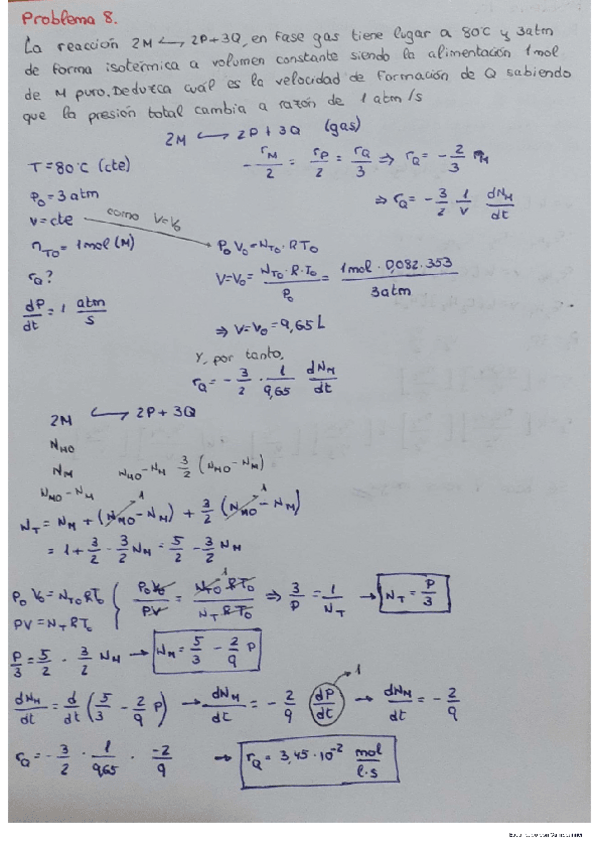 Problema 8.
La reacción 2M ⟷ 2P+3Q, en fase gas tiene lugar a 80°C y 3atm
de forma isotérmica a volumen constante siendo la alimentación 1mol
de M puro. Deduzca cuál es la velocidad de formación de Q sabiendo
que la presión total cambia a razón de 1 atm/s
2M ⟷ 2P+3Q (gas)
T=80°C (cte)
-rM/2 = rP/2 = rQ/3 ⇒ rQ = -2/3 rM
P0=3atm
⇒ rQ = -3/2 · 1/V dNM/dt
V=cte como V=V0
nT0=1mol (M)
P0 V0=NT0·RT0
rQ?
V=V0 = NT0·R·T0/P0 = 1mol·0,082·353/3atm
dP/dt = 1 atm/s
⇒ V=V0=9,65L
Y, por tanto,
rQ = -3/2 · 1/9,65 dNM/dt
2M ⟷ 2P+3Q
NM0
NM NM0-NM 3/2 (NM0-NM)
NM0-NM
NT = NM + (NM0-NM) + 3/2 (NM0-NM)
1 1
= 1+3/2 - 3/2 NM = 5/2 - 3/2 NM
P0 V0=NT0RT0
PV=NTRT0
P0V0/PV = NT0RT0/NTRT0 ⇒ 3/P = 1/NT → NT = P/3
1
P/3 = 5/2 - 3/2 NM → NM = 5/3 - 2/9 P
dNM/dt = d/dt (5/3 - 2/9 P) → dNM/dt = -2/9 dP/dt → dNM/dt = -2/9
1
rQ = -3/2 · 1/9,65 · -2/9 → rQ = 3,45·10⁻² mol/l·s